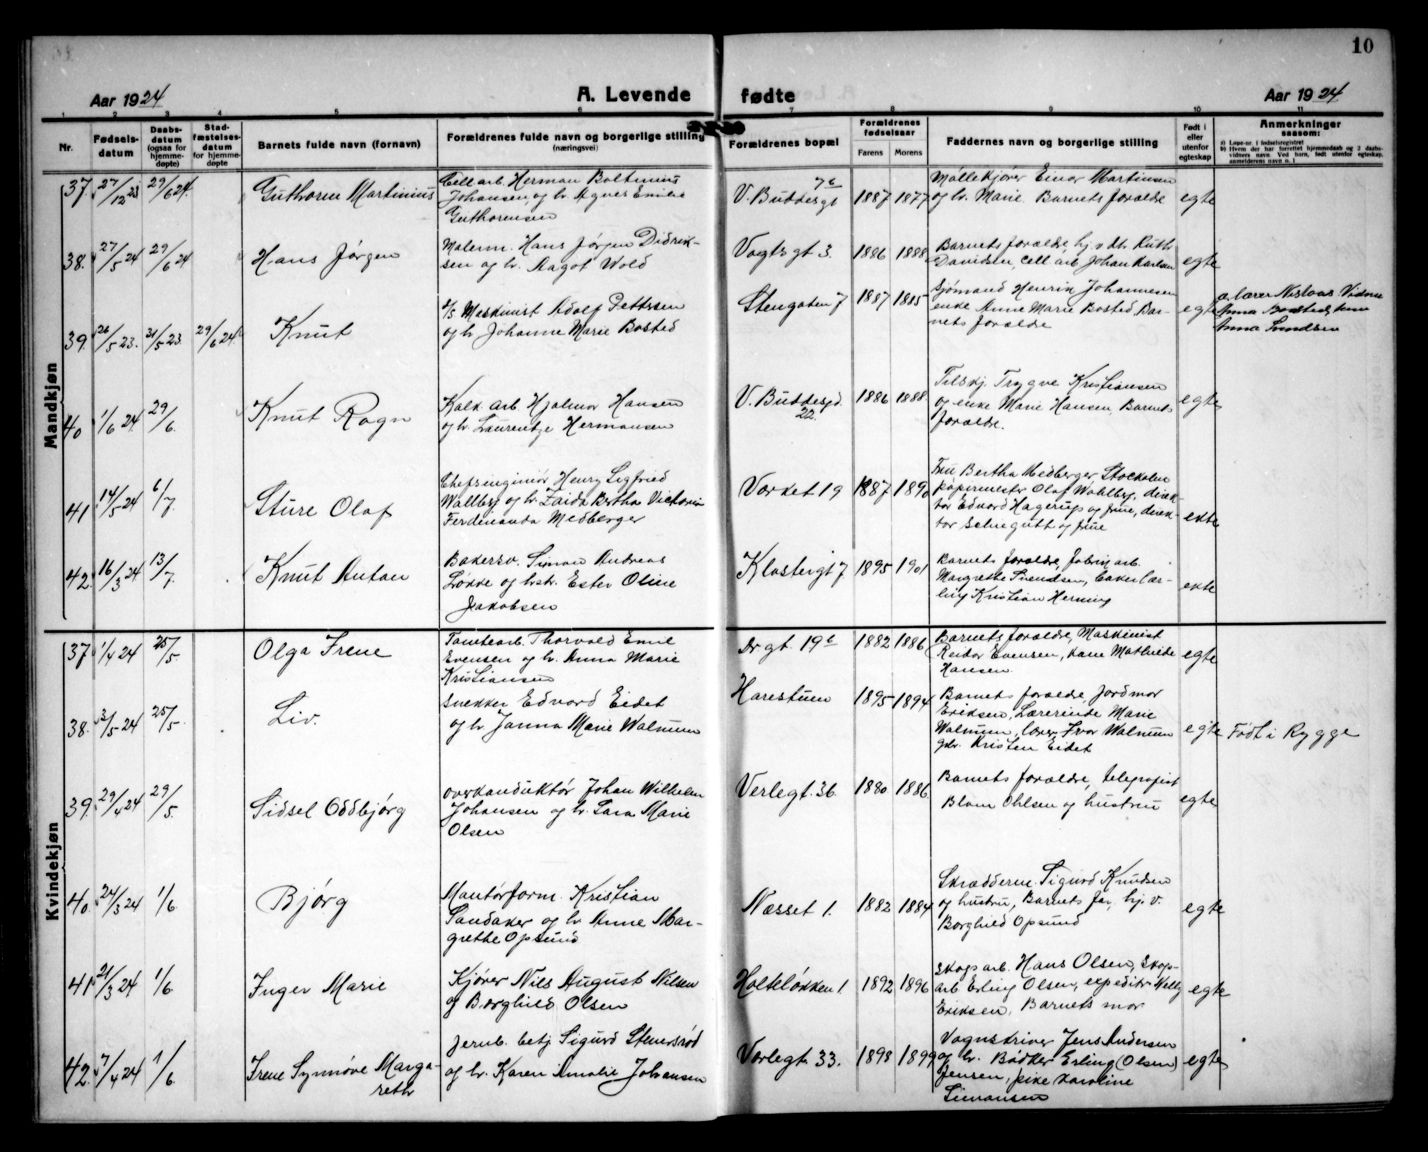 10
Aar 1924
A. Levende fødte
Aar 1924
1 2 3 4 5 6 7 8 9 10 11
Nr.
Fødsels-
datum
Daabs-
datum
(ogsaa for
hjemme-
døpte)
Stad-
fæstelses-
datum
for hjemme-
døpte
Barnets fulde navn (fornavn)
Forældrenes fulde navn og borgerlige stilling
(næringsvei)
Forældrenes bopæl
Forældrenes
fødselsaar
Farens Morens
Faddernes navn og borgerlige stilling
Født i
eller
utenfor
egteskap
Anmerkninger
saasom:
a) Løpe-nr. i fødselsregistret
b) Hvem der har forrettet hjemmedaab og 2 daabs-
vidners navn. Ved barn, født utenfor egteskap,
anmeldelsens navn o. l.
Mandkjøn
37. 27/12 23 29/6 24. Guthorm Martinius
Cell arb. Herman Boltinius
Johansen og h. Agnes Emilie
Guthormsen
V. Buddesgt 7c 1887 1877
Møllekjører Einar Martinsen
og h. Marie. Barnets foralde
egte
38. 27/5 24 29/6 24 Hans Jørgen
Malerm. Hans Jørgen Didrik-
sen og h. Aagot Wold
Vogts gt 3. 1886 1888
Barnets foralde, hj. v. dt. Ruth
Davidsen, cell arb Johan Karlsen
egte
39. 26/5 23. 21/5 23 29/6 24 Knut
Maskinist Adolf Pettersen
og h. Johanne Marie Bosted
Stengaten 7 1887 1885
Sjømand Henrik Johannesen
enke Anne Marie Bosted Bar-
nets foralde
egte
a. lærer Nistaas
Anna Bosted,
Anna Smedsen
40 1/6 24. 29/6. Knut Ragn
Kalk. arb Hjalmar Hansen
og h. Laurentze Hermansen
V. Buddesgd. 22. 1886 1888.
Tilskj. Trygve Kristiansen
og enke Marie Hansen, Barnets
foralde.
egte
41 14/5 24 6/7 Sture Olaf
Chefsingeniør Henry Sigfried
Wallby og h. Zaida Bertha Victoria
Ferdinanda Medberger
Varket 19 1887 1890
Fru Bertha Medberger Stockholm
papirmester Olaf Wahlby, direk-
tør Edvard Hagerup og frue, direk-
tør og frue
ekte
42. 16/3 24 13/7 Knut Anton
Bakersv. Simon Andreas
Løkke og hstr. Ester Oline
Jakobsen
Klostergt 7 1895 1901
Barnets foralde, Fabrik arb.
Margrethe Svendsen, bakerlær-
ling Kristian Herning
ekte
Kvindekjøn
37 1/4 24 25/5 Olga Irene
Tomtearb. Thorvald Emil
Evensen og h. Anna Marie
Kristiansen
Dr gt 19c 1882 1886
Barnets foralde, Maskinist
Reidar Evensen, kone Mathilde
Hansen
egte
38. 3/5 24 25/5 Liv.
Snekker Edvard Eidet
og h. Janna Marie Walmum
Harestuen 1895 1894
Barnets foralde, jordmor
Eriksen, Lærerinde Marie
Walmum, lærer Ivar Walmum
gbr. Kristen Eidet
egte Født i Rygge
39. 29/4 24 29/5. Sidsel Oddbjørg
overkonduktør Johan Wilhelm
Johansen og h. Sara Marie
Olsen
Verlegt 36. 1880 1886
Barnets foralde, telegrafist
Blom Ohlsen og hustru
egte
40. 24/3 24 1/6. Bjørg
Montørform. Kristian
Sandaker og h. Anne Mar-
grethe Opsund
Næsset 1. 1882 1884
Skrædderm. Sigurd Knudsen
og hustru, Barnets far, hj. v.
Borghild Opsund
egte
41 21/3 24 1/6 Inger Marie
Kjører Nils August Nilsen
og Borghild Olsen
Holkløkken 1. 1892 1896
Skops arb. Hans Olsen, Skop-
arb Erling Olsen, expeditr Willy
Eriksen, Barnets mor
egte
42. 7/4 24 1/6 Irene Synnøve Marga-
reth
Jernb. betj Sigurd Stenersrød
og h. Karen Amalie Johansen
Varlegt 33. 1898 1899
Vognskriver Jens Andersen
og h. Bødker Erling (Olsen)
Jensen, pike Karoline
Simonsen
egte